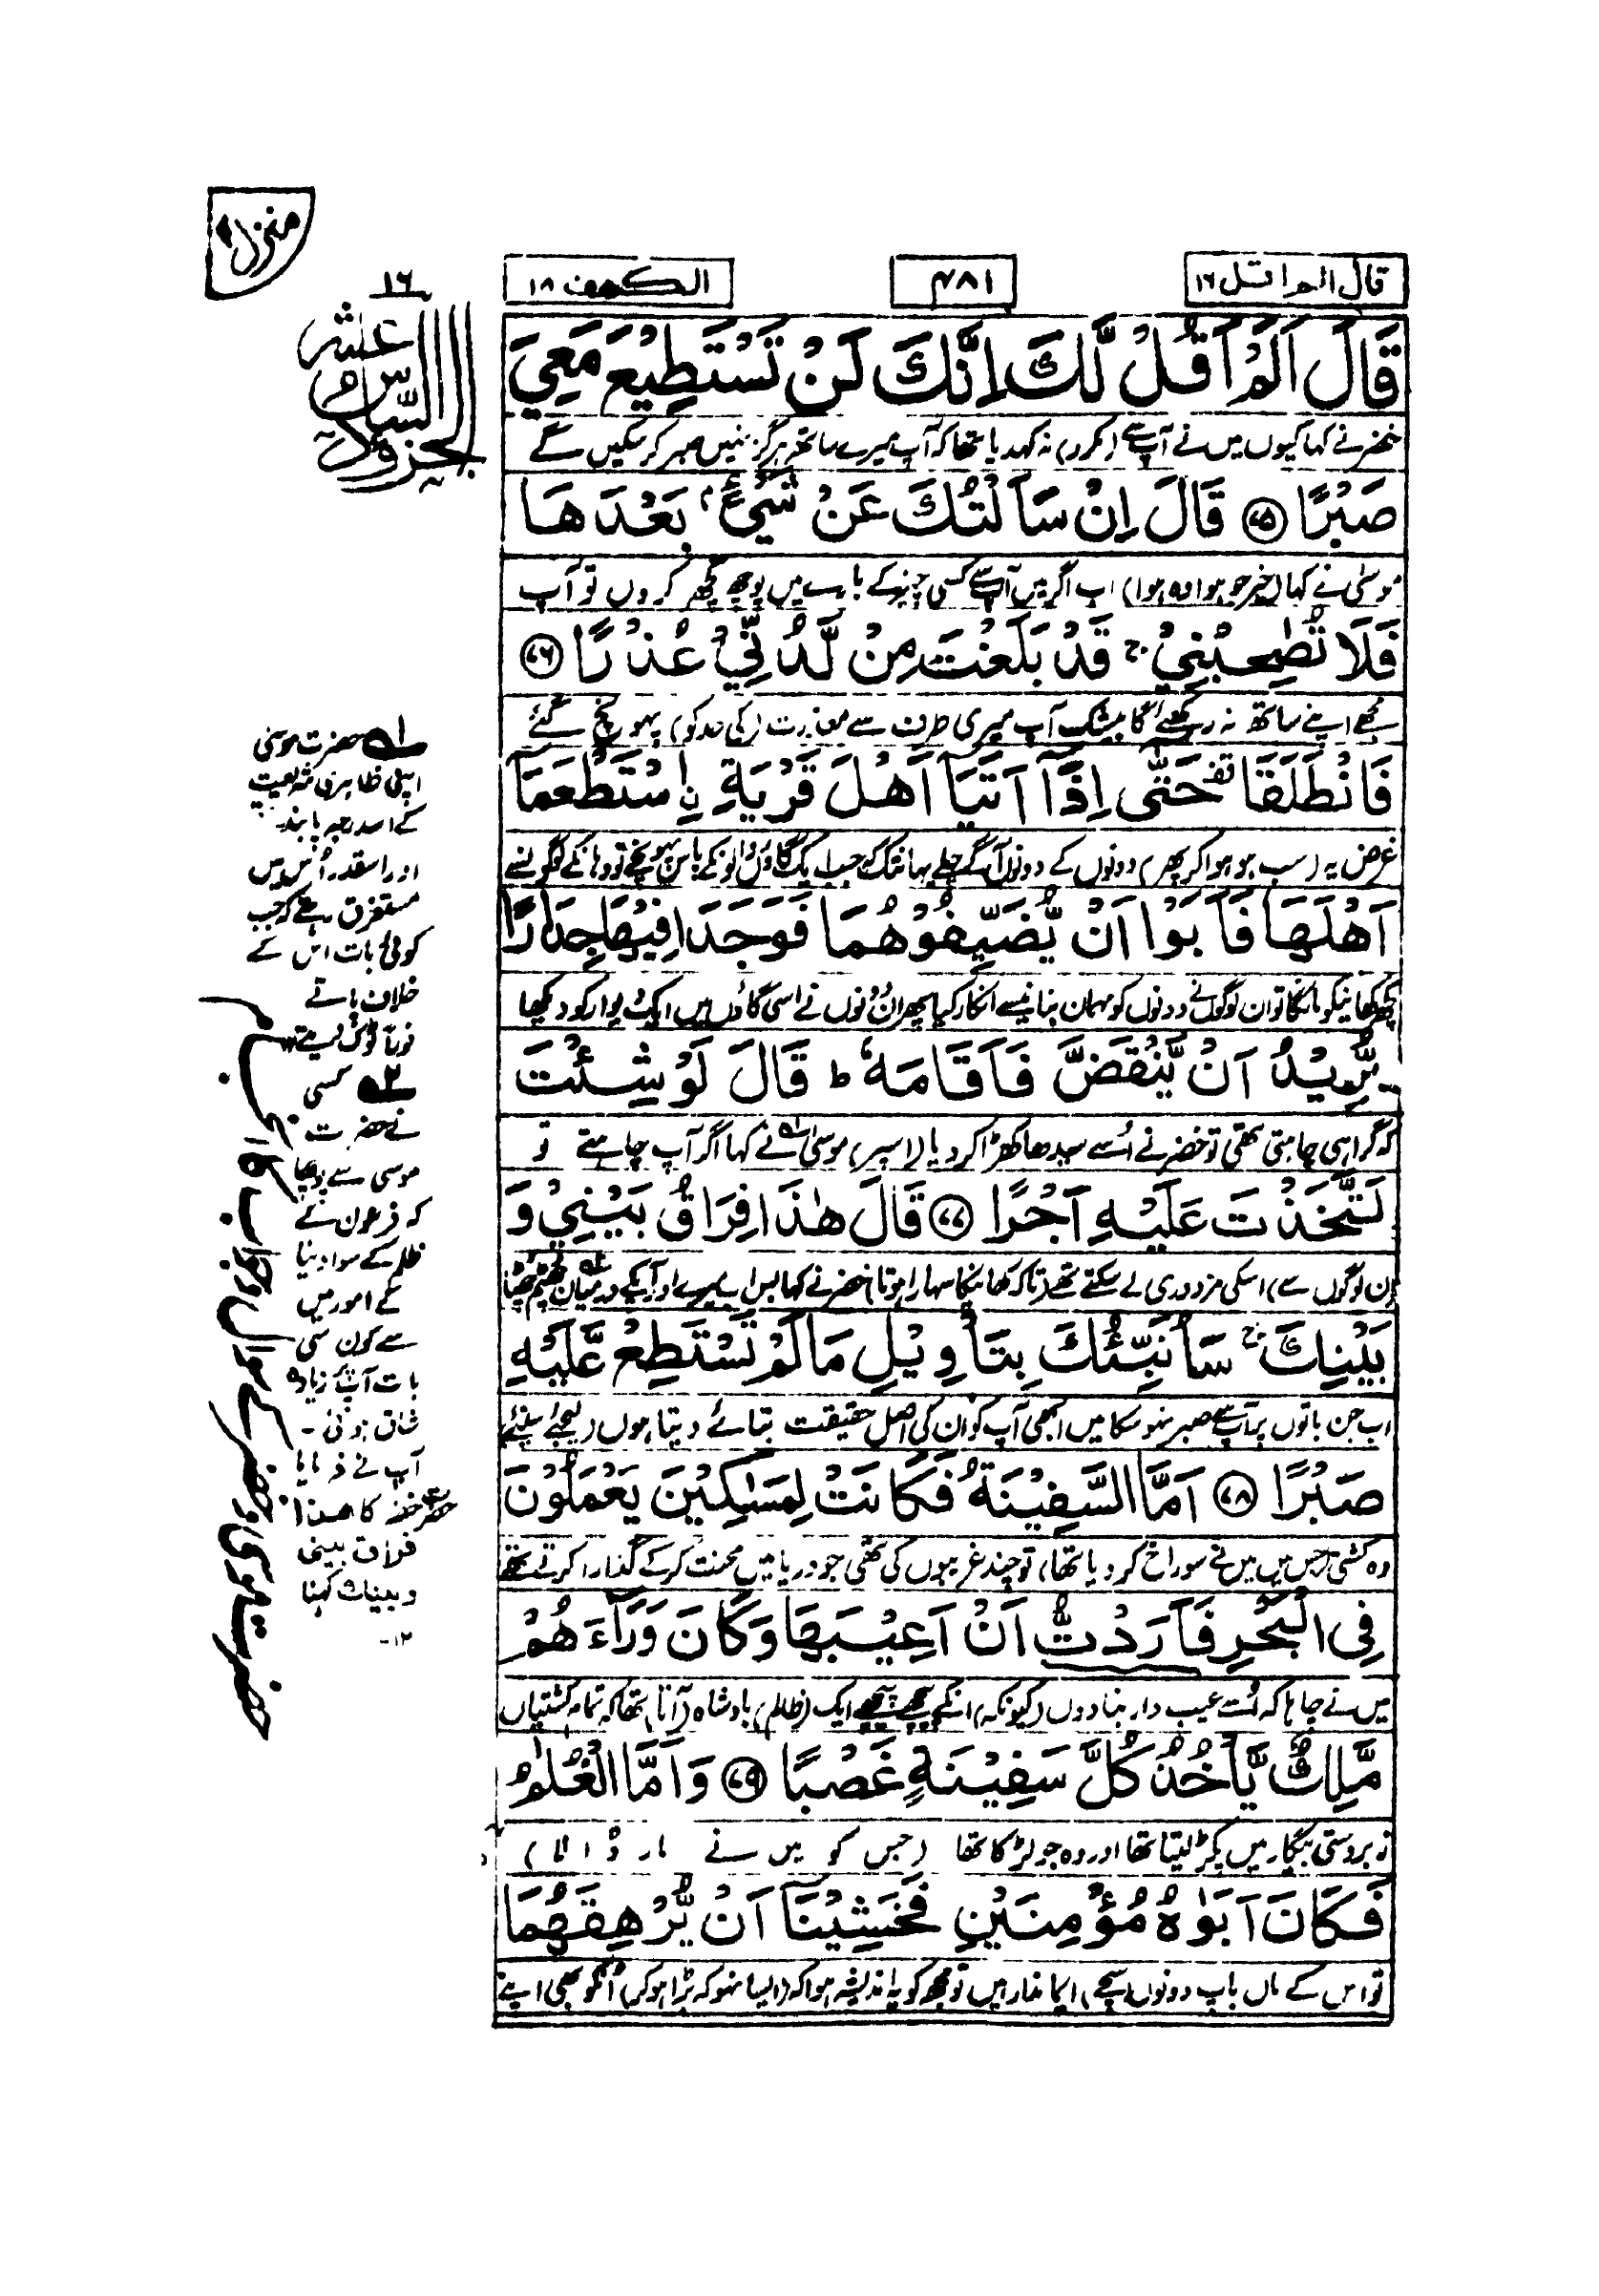 منزل
قال الم اقل ١٦
۴۸۱
الكهف ۱۸
قَالَ اَلَمْ اَقُلْ لَّكَ اِنَّكَ لَنْ تَسْتَطِيْعَ مَعِيَ
خضر نے کہا کیوں میں نے آپ سے (مکرر) نہ کہدیا تھا کہ آپ میرے ساتھ ہرگز نہیں صبر کر سکیں گے
صَبْرًا ۝۷۵ قَالَ اِنْ سَاَلْتُكَ عَنْ شَيْءٍۭ بَعْدَهَا
موسٰی نے کہا (خیر جو ہوا وہ ہوا) اب اگر میں آپ سے کسی چیز کے بارے میں پوچھ گچھ کروں تو آپ
فَلَا تُصٰحِبْنِيْ ۚ قَدْ بَلَغْتَ مِنْ لَّدُنِّيْ عُذْرًا ۝۷۶
مجھے اپنے ساتھ نہ رکھئے گا بیشک آپ میری طرف سے معذرت (کی حد کو) پہونچ گئے
فَانْطَلَقَا حَتّٰۤى اِذَاۤ اَتَيَاۤ اَهْلَ قَرْيَةِ اِۨسْتَطْعَمَاۤ
غرض یہ (سب ہو ہوا کر پھر) دونوں کے دونوں آگے چلے یہانتک کہ جب ایک گاؤں والونکے پاس پہونچے تو وہانکے لوگونسے
اَهْلَهَا فَاَبَوْا اَنْ يُّضَيِّفُوْهُمَا فَوَجَدَا فِيْهَا جِدَارًا
کچھ کھانیکو مانگا تو ان لوگونے دونوں کو مہمان بنانیسے انکار کیا پھر ان دونوں نے اسی گاؤں میں ایک دیوار کو دیکھا
يُّرِيْدُ اَنْ يَّنْقَضَّ فَاَقَامَهٗ ؕ قَالَ لَوْ شِئْتَ
کہ گرا ہی چاہتی تھی تو خضر نے اُسے سیدھا کھڑا کر دیا (اسپر) موسٰی نے کہا اگر آپ چاہتے تو
لَتَّخَذْتَ عَلَيْهِ اَجْرًا ۝۷۷ قَالَ هٰذَا فِرَاقُ بَيْنِيْ وَ
(ان لوگوں سے) اسکی مزدوری لے سکتے تھے (تاکہ کھانیکا سہارا ہوتا) خضر نے کہا بس اب میرے اور آپکے درمیان چھٹم چھٹا
بَيْنِكَ ۚ سَاُنَبِّئُكَ بِتَاْوِيْلِ مَا لَمْ تَسْتَطِعْ عَّلَيْهِ
اب جن باتوں پر آپ سے صبر نہو سکا میں ابھی آپ کو ان کی اصل حقیقت بتائے دیتا ہوں (لیجئے سنئے)
صَبْرًا ۝۷۸ اَمَّا السَّفِيْنَةُ فَكَانَتْ لِمَسٰكِيْنَ يَعْمَلُوْنَ
وہ کشتی (جس میں میں نے سوراخ کر دیا تھا) تو چند غریبوں کی تھی جو دریا میں محنت کر کے گذارا کرتے تھے
فِي الْبَحْرِ فَاَرَدْتُّ اَنْ اَعِيْبَهَا وَكَانَ وَرَآءَهُمْ
میں نے چاہا کہ اُسے عیب دار بنا دوں (کیونکہ) انکے پیچھے پیچھے ایک (ظالم) بادشاہ (آتا) تھا کہ تمام کشتیاں
مَّلِكٌ يَّاْخُذُ كُلَّ سَفِيْنَةٍ غَصْبًا ۝۷۹ وَاَمَّا الْغُلٰمُ
زبردستی بیگار میں پکڑ لیتا تھا اور وہ جو لڑکا تھا (جس کو میں نے مار ڈالا)
فَكَانَ اَبَوٰهُ مُؤْمِنَيْنِ فَخَشِيْنَاۤ اَنْ يُّرْهِقَهُمَا
تو اس کے ماں باپ دونوں (سچے) ایماندار ہیں تو مجھ کو یہ اندیشہ ہوا کہ (ایسا نہو کہ بڑا ہو کر) انکو بھی اپنے
١٦
الجزو السادس عشر
۱ حضرت موسٰی
اپنی ظاہری شریعت
کے اسدرجہ پابند
اور اسقدر اُس میں
مستغرق تھے کہ جب
کوئی بات اس کے
خلاف پاتے
فوراً ٹوک دیتے
۲ کسی
نے حضرت
موسی سے پوچھا
کہ فرعون کے
ظلم کے سوا دنیا
کے امور میں
سے کون سی
بات آپ پر زیادہ
شاق ہوئی ۔
آپ نے فرمایا
حضرت خضر کا هذا
فراق بینی
و بینک کہنا
۱۲۔
حضرت موسٰی و خضر کے سوال و جواب کا